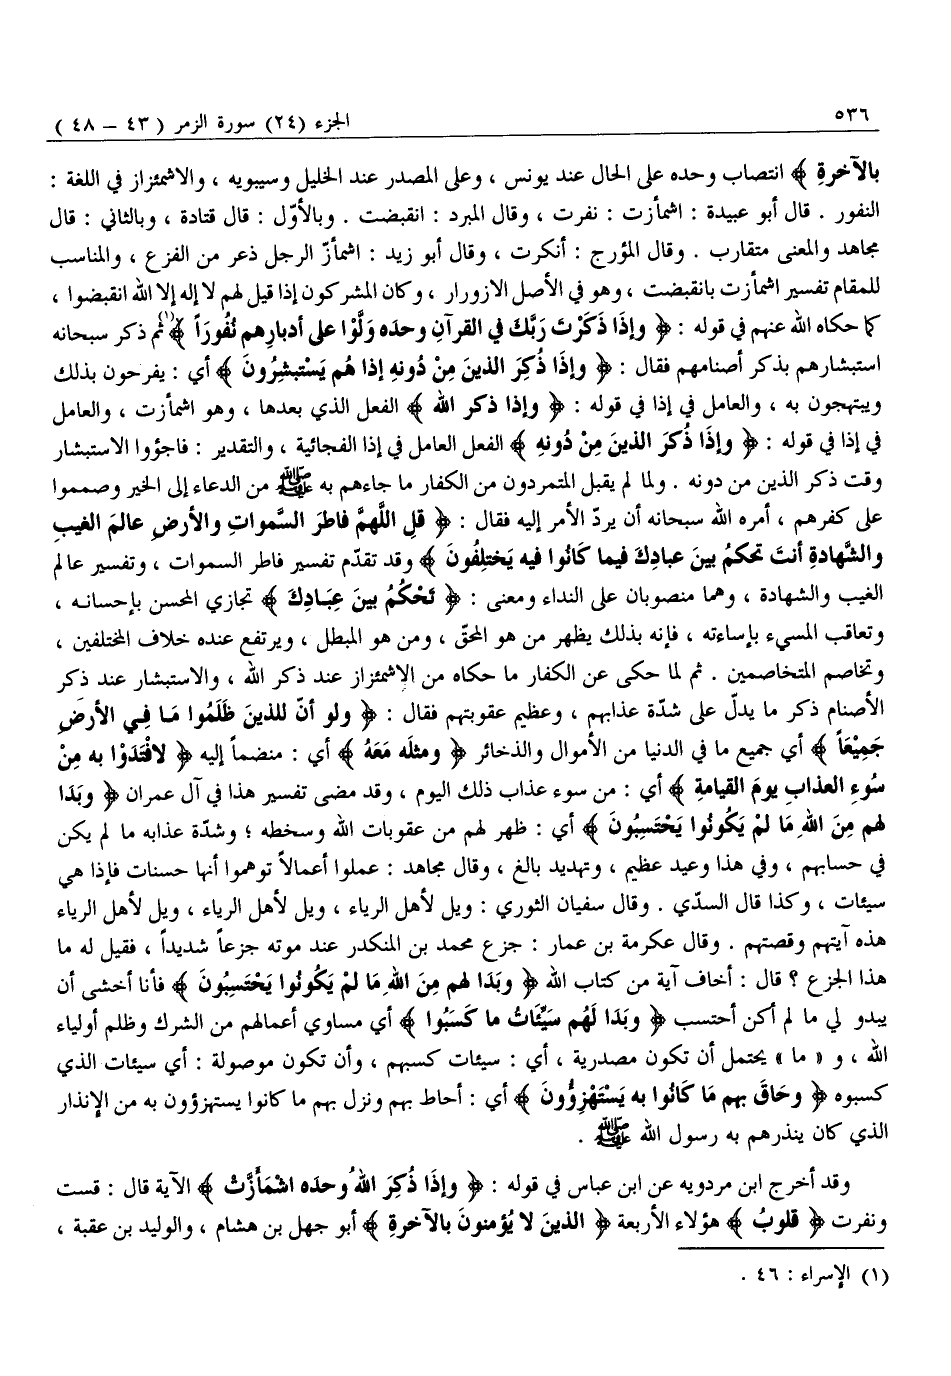 ٥٣٦ الجزء (٢٤) سورة الزمر ( ٤٣ – ٤٨ )
بالآخرةِ ﴾ انتصاب وحده على الحال عند يونس ، وعلى المصدر عند الخليل وسيبويه ، والاشمئزاز في اللغة :
النفور . قال أبو عبيدة : اشمأزت : نفرت ، وقال المبرد : انقبضت . وبالأوّل : قال قتادة ، وبالثاني : قال
مجاهد والمعنى متقارب . وقال المؤرج : أنكرت ، وقال أبو زيد : اشمأزّ الرجل ذعر من الفزع ، والمناسب
للمقام تفسير اشمأزت بانقبضت ، وهو في الأصل الازورار ، وكان المشركون إذا قيل لهم لا إله إلا الله انقبضوا ،
كما حكاه الله عنهم في قوله : ﴿ وإذَا ذَكَرْتَ رَبَّكَ في القرآنِ وحدَه وَلَّوْا على أدبارِهم نُفُورَاً ﴾(١) ثم ذكر سبحانه
استبشارهم بذكر أصنامهم فقال : ﴿ وإذَا ذُكِرَ الذينَ مِنْ دُونِهِ إذا هُم يَسْتبشِرُونَ ﴾ أي : يفرحون بذلك
ويبتهجون به ، والعامل في إذا في قوله : ﴿ وإذا ذكر الله ﴾ الفعل الذي بعدها ، وهو اشمأزت ، والعامل
في إذا في قوله : ﴿ وإذَا ذُكرَ الذينَ مِنْ دُونِهِ ﴾ الفعل العامل في إذا الفجائية ، والتقدير : فاجؤوا الاستبشار
وقت ذكر الذين من دونه . ولما لم يقبل المتمردون من الكفار ما جاءهم به ﷺ من الدعاء إلى الخير وصمموا
على كفرهم ، أمره الله سبحانه أن يردّ الأمر إليه فقال : ﴿ قلِ اللَّهمَّ فاطرَ السَّمواتِ والأرضِ عالمَ الغيبِ
والشَّهادةِ أنتَ تحكمُ بينَ عبادِكَ فيما كَانُوا فيه يَختلِفُونَ ﴾ وقد تقدّم تفسير فاطر السموات ، وتفسير عالم
الغيب والشهادة ، وهما منصوبان على النداء ومعنى : ﴿ تَحْكُمُ بينَ عِبَادِكَ ﴾ تجازي المحسن بإحسانـه ،
وتعاقب المسيء بإساءته ، فإنه بذلك يظهر من هو المحقّ ، ومن هو المبطل ، ويرتفع عنده خلاف المختلفين ،
وتخاصم المتخاصمين . ثم لما حكى عن الكفار ما حكاه من الاشمئزاز عند ذكر الله ، والاستبشار عند ذكر
الأصنام ذكر ما يدلّ على شدّة عذابهم ، وعظيم عقوبتهم فقال : ﴿ ولو أنّ للذينَ ظَلَمُوا مَـا فـي الأرضِ
جَمِيْعَاً ﴾ أي جميع ما في الدنيا من الأموال والذخائر ﴿ ومثلَه مَعَهُ ﴾ أي : منضماً إليه ﴿ لافْتَدَوْا به مِنْ
سُوءِ العذابِ يومَ القيامةِ ﴾ أي : من سوء عذاب ذلك اليوم ، وقد مضى تفسير هذا في آل عمران ﴿ وبَدَا
لهم مِنَ اللهِ مَا لمْ يَكُونُوا يَحْتَسِبُونَ ﴾ أي : ظهر لهم من عقوبات الله وسخطه ؛ وشدّة عذابه ما لم يكن
في حسابهم ، وفي هذا وعيد عظيم ، وتهديد بالغ ، وقال مجاهد : عملوا أعمالاً توهموا أنها حسنات فإذا هي
سيئات ، وكذا قال السدّي . وقال سفيان الثوري : ويل لأهل الرياء ، ويل لأهل الرياء ، ويل لأهل الرياء
هذه آيتهم وقصتهم . وقال عكرمة بن عمار : جزع محمد بن المنكدر عند موته جزعاً شديداً ، فقيل له ما
هذا الجزع ؟ قال : أخاف آية من كتاب الله ﴿ وبَدَا لهم مِنَ اللهِ مَا لمْ يَكُونُوا يَحْتَسِبُونَ ﴾ فأنا أخشى أن
يبدو لي ما لم أكن أحتسب ﴿ وبَدَا لَهُم سَيِّئاتُ ما كَسَبُوا ﴾ أي مساوي أعمالهم من الشرك وظلم أولياء
الله ، و « ما » يحتمل أن تكون مصدرية ، أي : سيئات كسبهم ، وأن تكون موصولة : أي سيئات الذي
كسبوه ﴿ وحَاقَ بهم مَا كَانُوا به يَسْتَهْزِؤُونَ ﴾ أي : أحاط بهم ونزل بهم ما كانوا يستهزؤون به من الإنذار
الذي كان ينذرهم به رسول الله ﷺ .
وقد أخرج ابن مردويه عن ابن عباس في قوله : ﴿ وإذَا ذُكِرَ اللهُ وحدَه اشْمَأزَّتْ ﴾ الآية قال : قست
ونفرت ﴿ قلوبُ ﴾ هؤلاء الأربعة ﴿ الذينَ لا يُؤمنونَ بالآخرةِ ﴾ أبو جهل بن هشام ، والوليد بن عقبة ،
(١) الإسراء : ٤٦ .